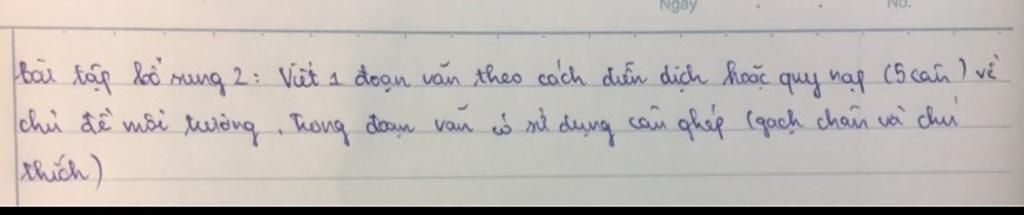 Ngày . . No.
Bài tập bổ sung 2: Viết 1 đoạn văn theo cách diễn dịch hoặc quy nạp (5 câu) về
chủ đề môi trường. Trong đoạn văn có sử dụng câu ghép (gạch chân và chú
thích)